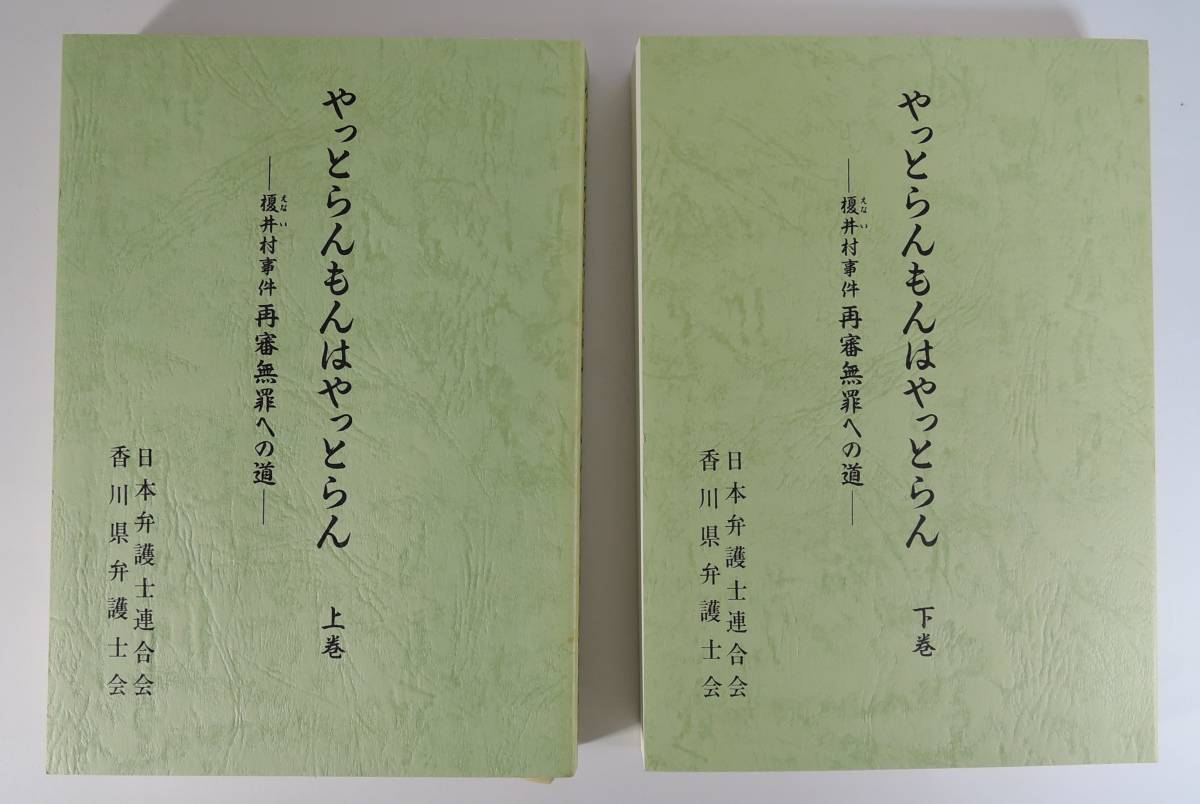 やっとらんもんはやっとらん 上巻
―榎井村事件 再審無罪への道―
えない
日本弁護士連合会
香川県弁護士会
やっとらんもんはやっとらん 下巻
―榎井村事件 再審無罪への道―
えない
日本弁護士連合会
香川県弁護士会